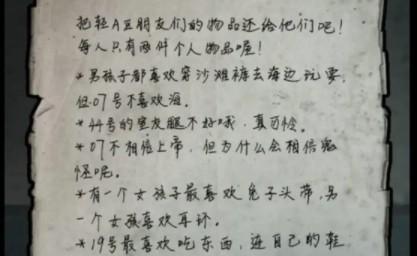 把轻A豆朋友们的物品还给他们吧！
每人只有两件个人物品喔！
*男孩子都喜欢穿沙滩裤去海边玩耍，
但07号不喜欢海。
*44号的室友腿不好哦，真可怜。
*07不相信上帝，但为什么会相信鬼
怪呢。
*有一个女孩子最喜欢兔子头带，另
一个女孩喜欢耳环。
*19号最喜欢吃东西，连自己的鞋